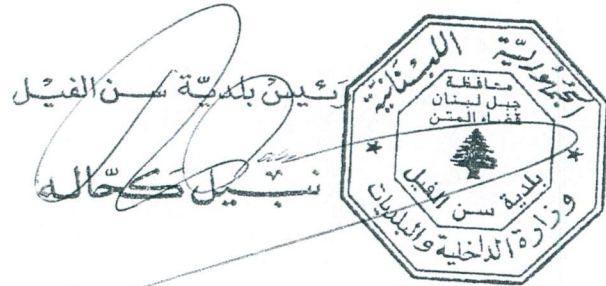 رئيس بلديّة سن الفيل
نبيل كحّاله
الجمهوريّة اللبنانيّة
محافظة
جبل لبنان
قضاء المتن
بلدية سن الفيل
وزارة الداخلية والبلديات